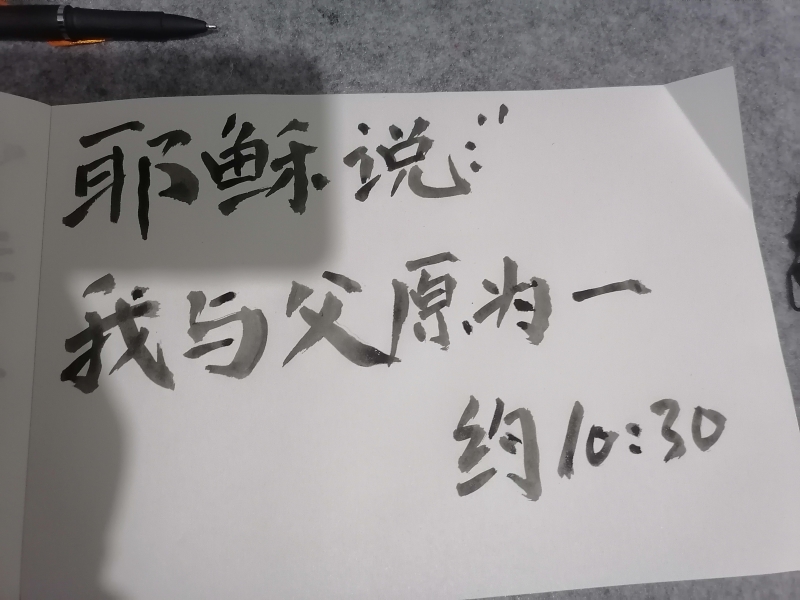 耶稣说:"
我与父原为一
约10:30